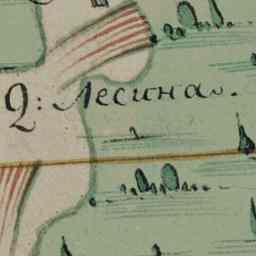 Q: Лесина.